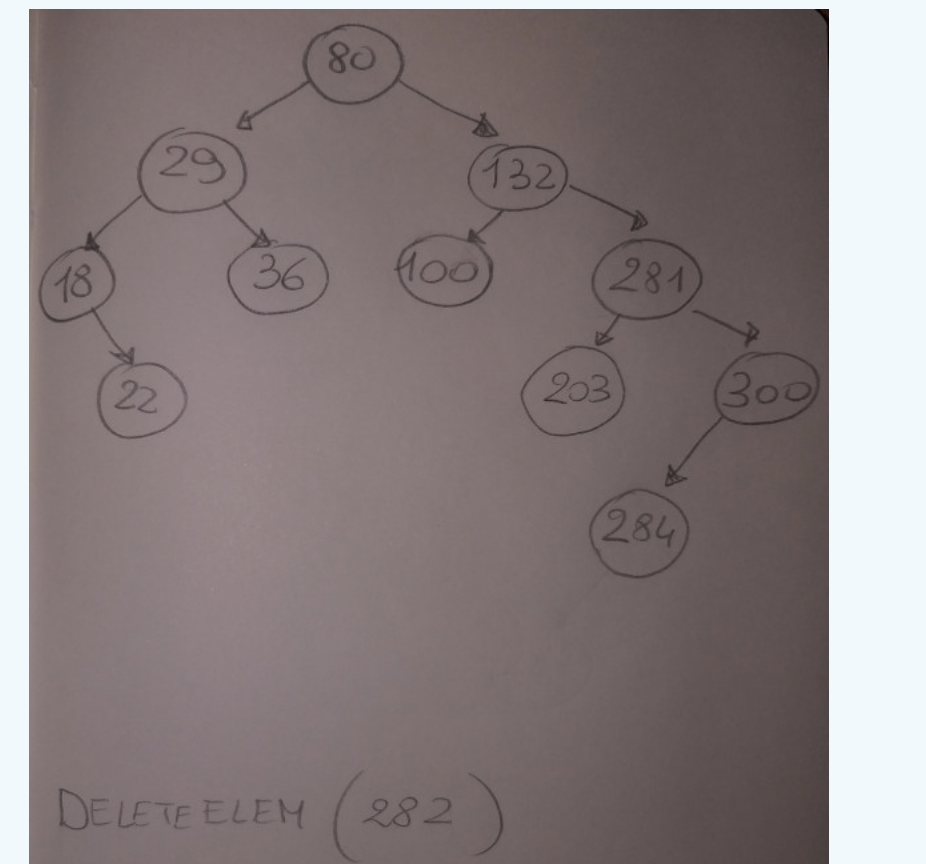 80
29 132
18 36 100 281
22 203 300
284
DELETEELEM (282)